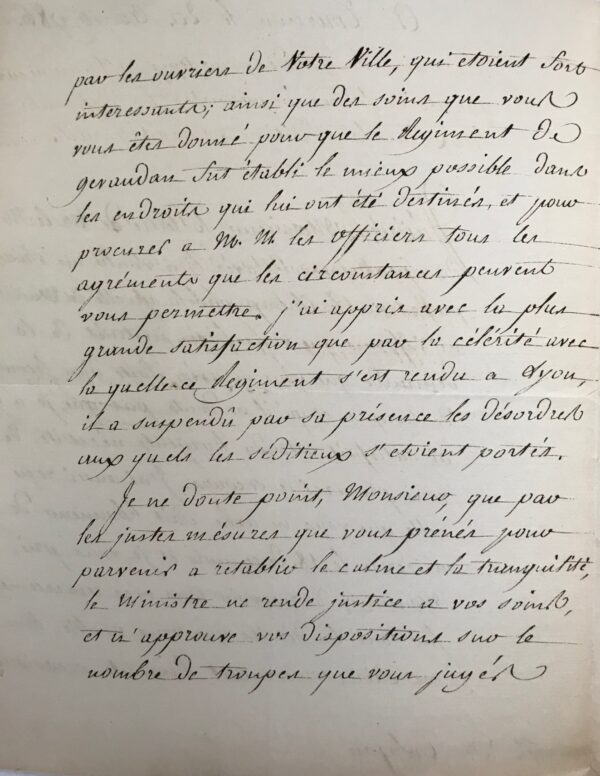 par les ouvriers de Votre Ville, qui etoient fort
interessants; ainsi que des soins que vous
vous êtes donné pour que le Regiment de
gevaudan fut établi le mieux possible dans
les endroits qui lui ont été destinés, et pour
procurer a M. M. les officiers tous les
agréments que les circonstances peuvent
vous permettre. j'ai appris avec la plus
grande satisfaction que par la célérité avec
la quelle ce Regiment s'est rendu a Lyon,
il a suspendû par sa présence les désordres
aux quels les séditieux s'etoient portés.
Je ne doute point, Monsieur, que par
les justes mésures que vous prénés pour
parvenir a retablir le calme et la tranquilité,
le Ministre ne rende justice a vos soins,
et n'approuve vos dispositions sur le
nombre de troupes que vous jugés